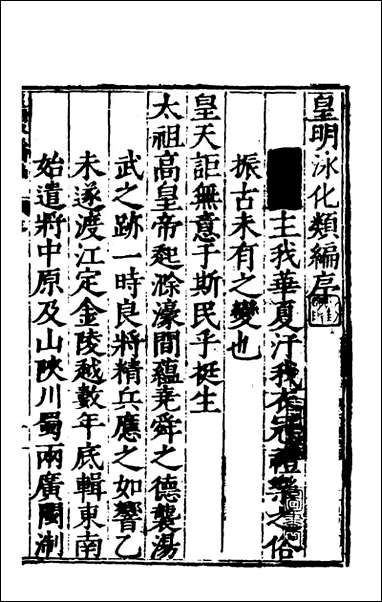 皇明泳化類編序
主我華夏汙我衣冠禮樂之俗
振古未有之變也
皇天詎無意于斯民乎挺生
太祖高皇帝起滁濠間蘊堯舜之德襲湯
武之跡一時良將精兵應之如響乙
未遂渡江定金陵越數年底輯東南
始遣將中原及山陜川蜀兩廣閩浙